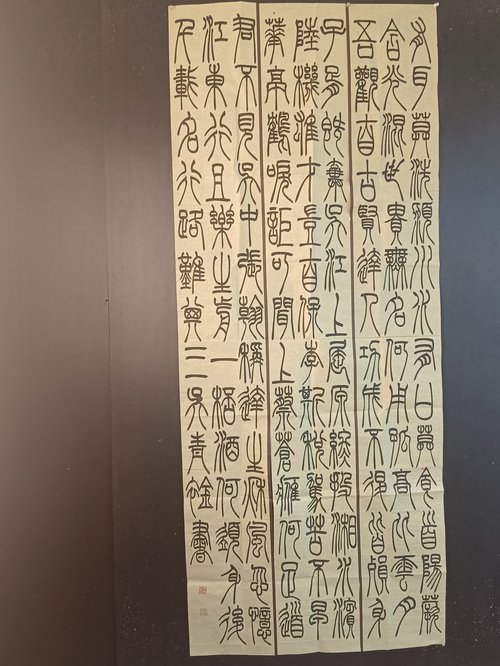 有耳莫洗潁川水有口莫食首陽蕨
含光混世貴無名何用孤高比雲月
吾觀自古賢達人功成不退皆殞身
子胥既棄吳江上屈原終投湘水濱
陸機雄才豈自保李斯稅駕苦不早
華亭鶴唳詎可聞上蔡蒼鷹何足道
君不見吳中張翰稱達生秋風忽憶
江東行且樂生前一桮酒何須身後
千載名行路難其三吳青雄書